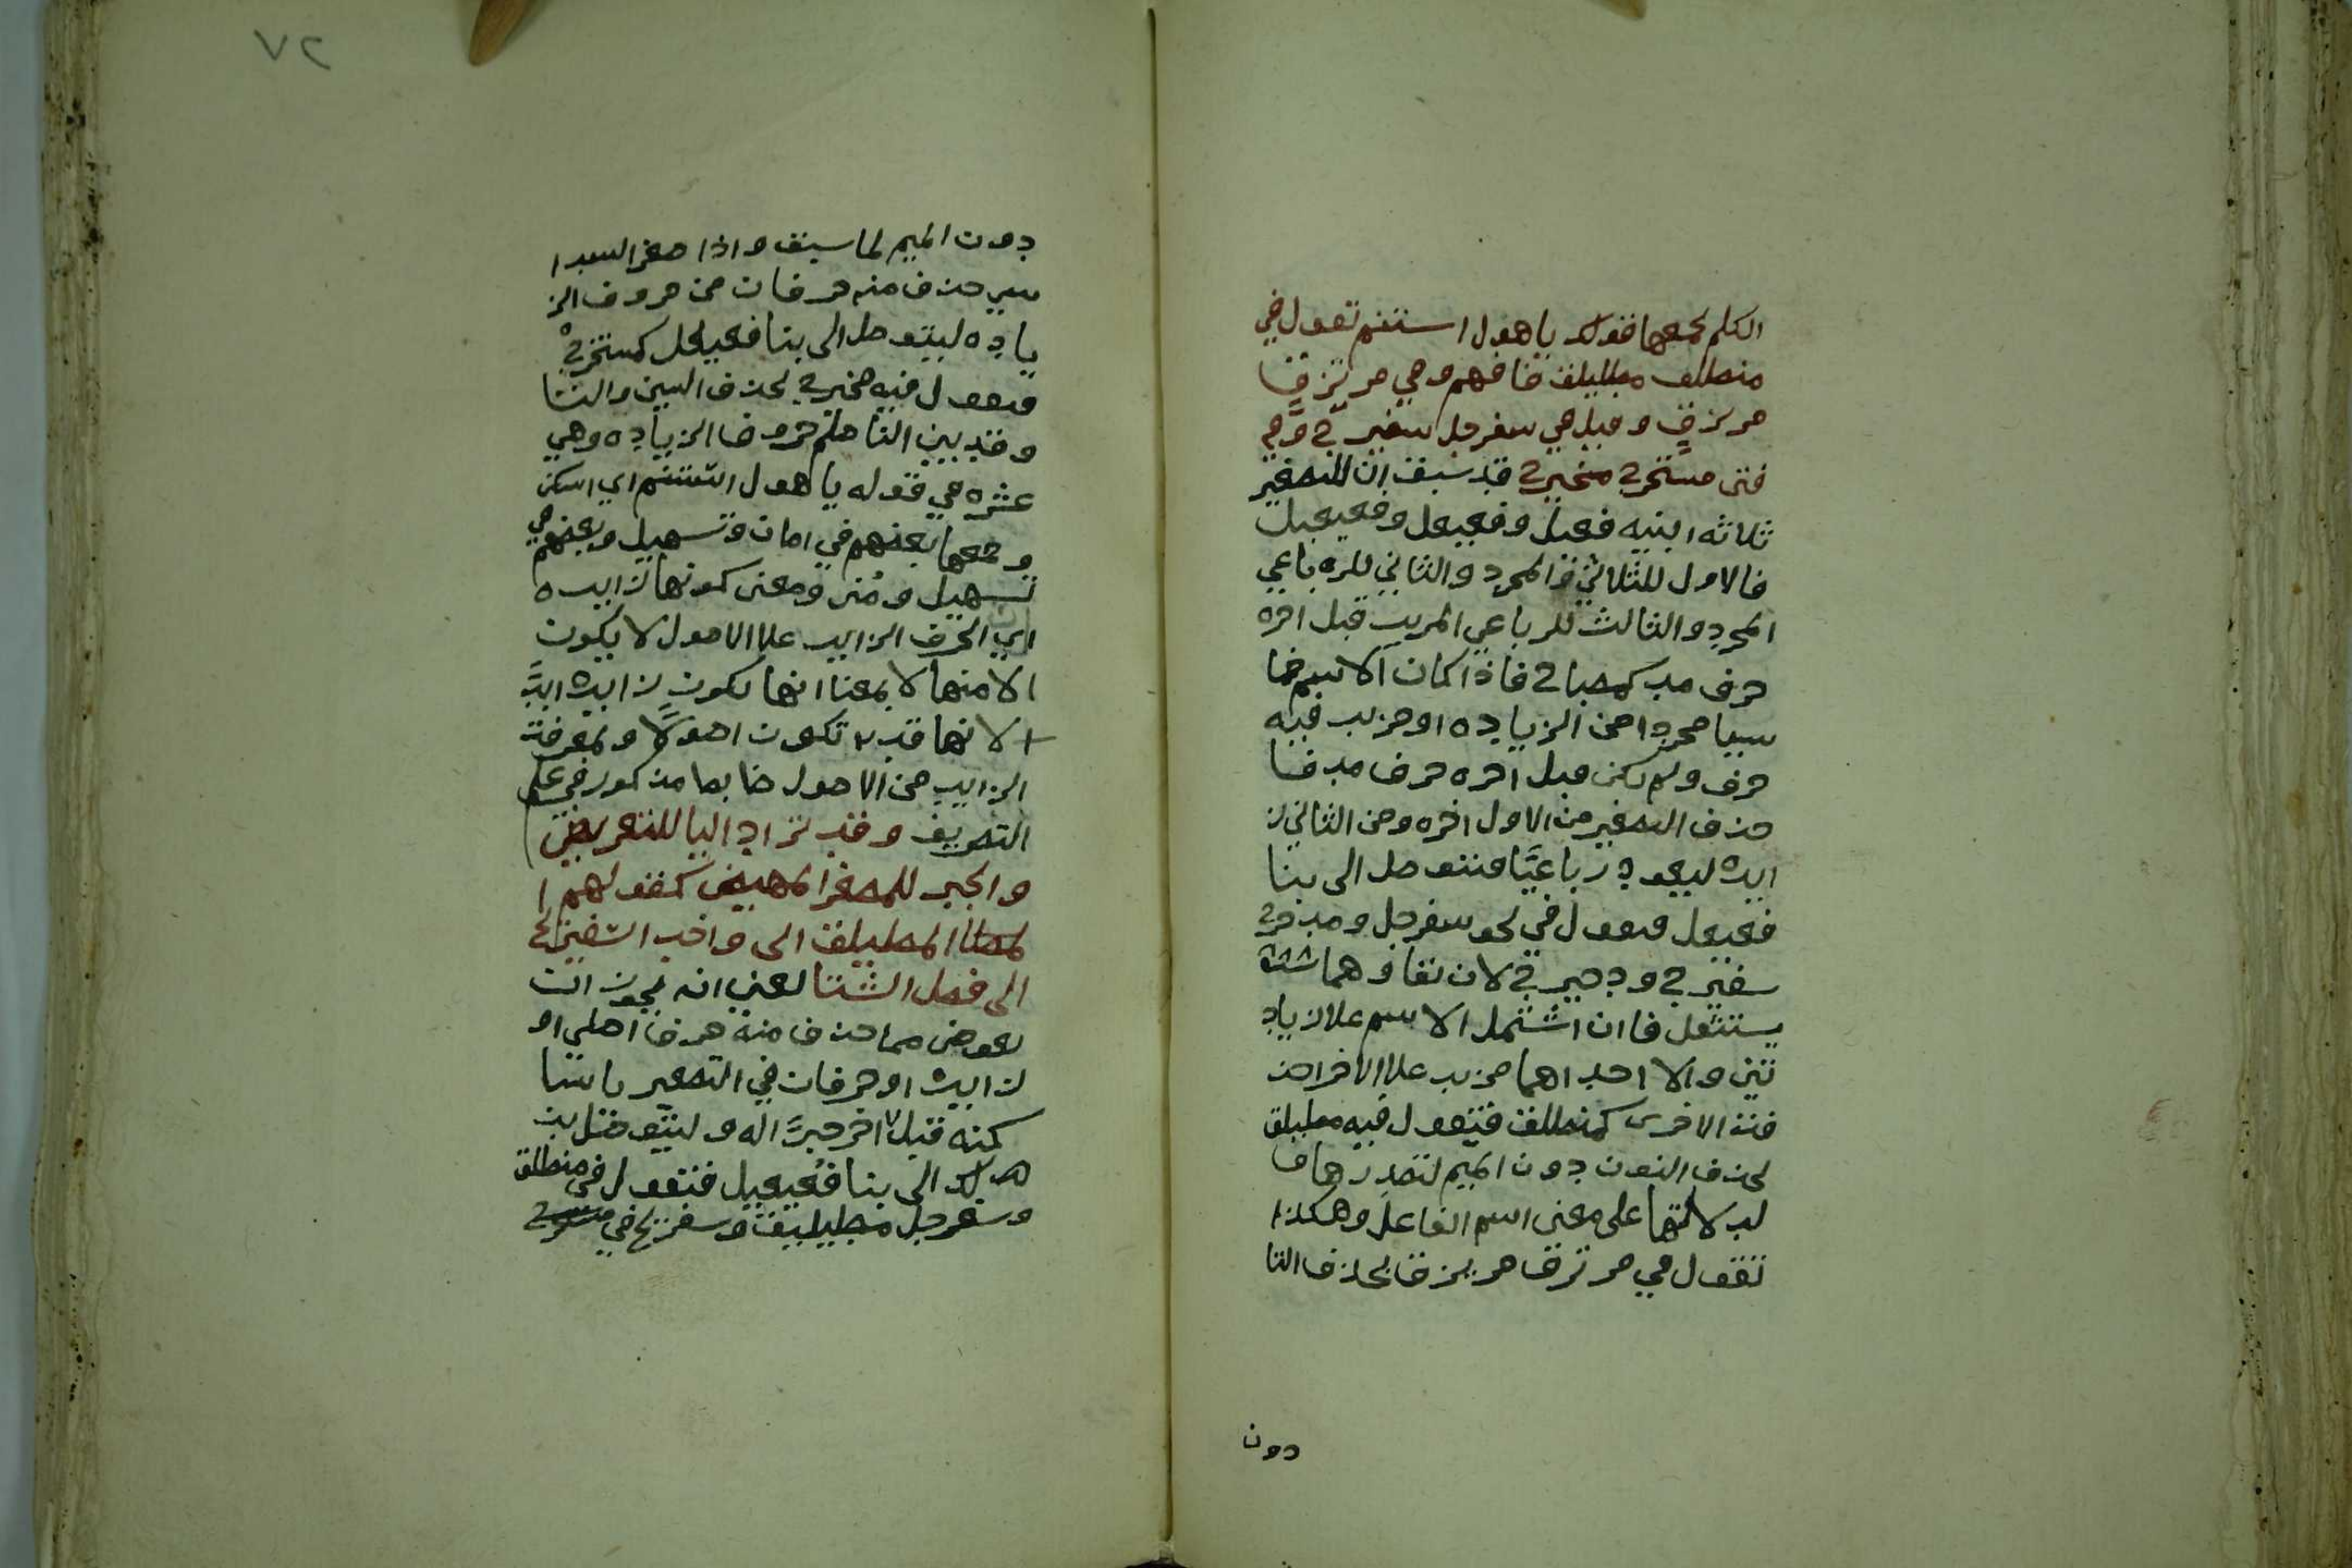 الكلم يجمعها قولك يا هول استنم تقول في
منطلق مطيلق فافهم وفي مرتزق
مريزق وقيل في سفرجل سفيرج وفي
فتى مستخرج مخيرج قد سبق ان للتصغير
ثلاثه ابنيه فعيل وفعيعل وفعيعيل
فالاول للثلاثي المجرد والثاني للرباعي
المجرد والثالث للرباعي المزيد قبل اخره
حرف مد كمصباح فاذا كان الاسم خما
سيا مجردا من الزياده او مزيد فيه
حرف ولم يكن قبل اخره حرف مد فا
حذف التصغير من الاول اخره ومن الثاني ز
ايده ليعود رباعيًا فنتوصل الى بنا
فعيعل فتقول في نحو سفرجل ومدحرج
سفيرج ودحيرج لان بقاوهما
يستثقل فان اشتمل الاسم على زياد
تين والا احداهما مزيد على الاخرا حذ
فت الاخرى كمنطلق فتقول فيه مطيلق
بحذف النون دون الميم لتصدرها و
لدلالتها على معنى اسم الفاعل وهكذا
تقول في مرتزق مريزق بحذف التا
دون
٧٢
دون الميم لما سبق واذا صغر السدا
سي حذف منه حرفان من حروف الز
ياده ليتوصل الى بنا فعيعل كمستخرج
فتقول فيه مخيرج بحذف السين والتا
وقد بين الناظم حروف الزياده وهي
عشره في قوله يا هول استنم اي اسكن
وجمعها بعضهم في امان وتسهيل وبعضهم في
تسهيل ومعنى كونها زايده
اي الحرف الزايد على الاصول لا يكون
الا منها لا بمعنا انها تكون زايده ابدً
الانها قد تكون اصولًا ولمعرفة
الزايد من الاصول ضابط مذكور في علم
التصريف وقد تزاد اليا للتعويض
والجبر للمصغر المهيض كقولهم ا
لمطيليق اتى واخب السفيريج
الى فصل الشتا يعني انه يجوز ان
يعوض مما حذف منه حرفا اصلي او
زايده او حرفان في التصغير يا سا
كنه قبل اخر جبرًا له وليتوصل بذ
لك الى بنا فعيعيل فتقول في منطلق
وسفرجل مطيليق وسفيريج في مستخرج